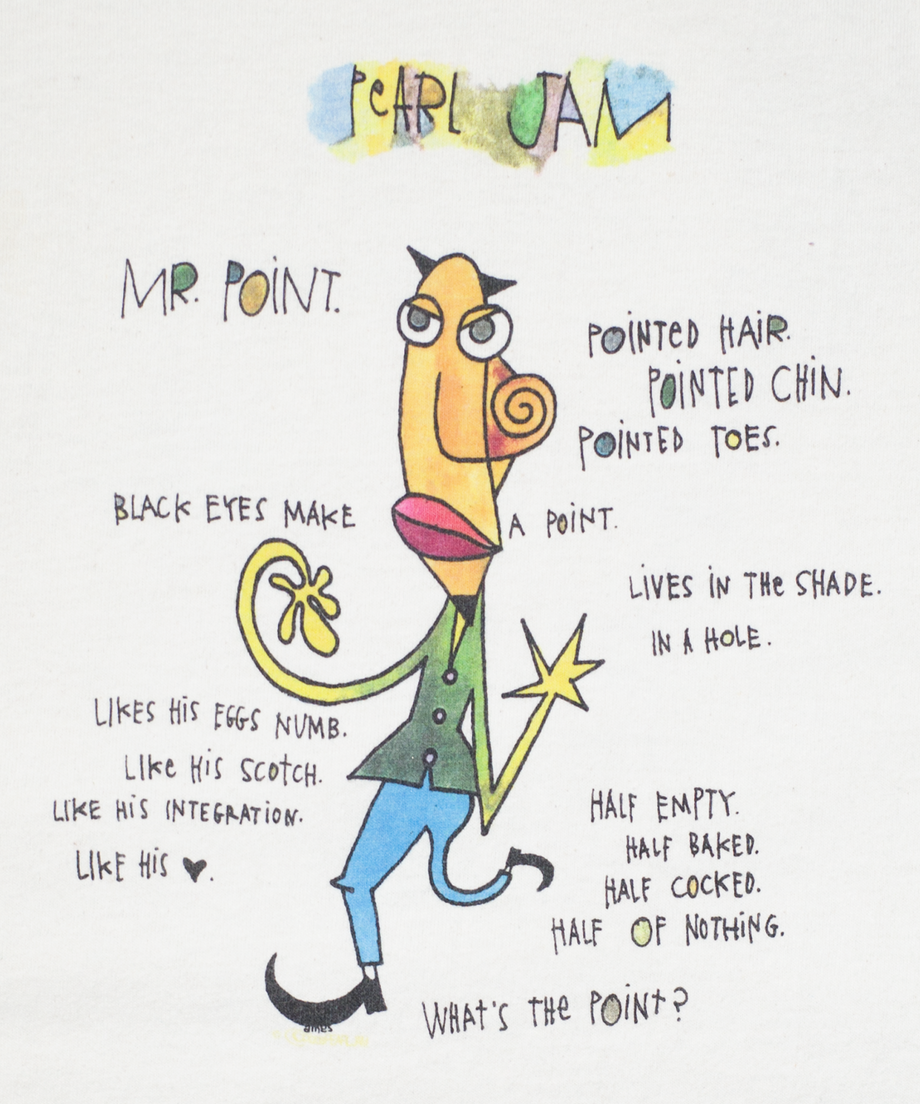 PEARL JAM
MR. POINT.
POINTED HAIR.
POINTED CHIN.
POINTED TOES.
BLACK EYES MAKE A POINT.
LIVES IN THE SHADE.
IN A HOLE.
LIKES HIS EGGS NUMB.
LIKE HIS SCOTCH.
LIKE HIS INTEGRATION.
LIKE HIS ♥.
HALF EMPTY.
HALF BAKED.
HALF COCKED.
HALF OF NOTHING.
WHAT'S THE POINT?
ames